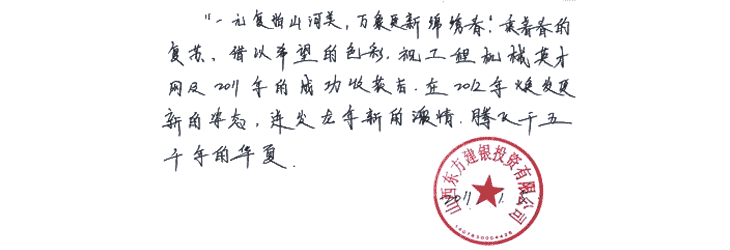 “一元复始山河美,万象更新绵绣春”.乘着春的
复苏、借以希望的色彩.祝工程机械英才
网及2011年的成功收获后.在2012年焕发更
新的姿态,迸发龙年新的激情.腾飞于五
千年的华夏.
山西东方建银投资有限公司